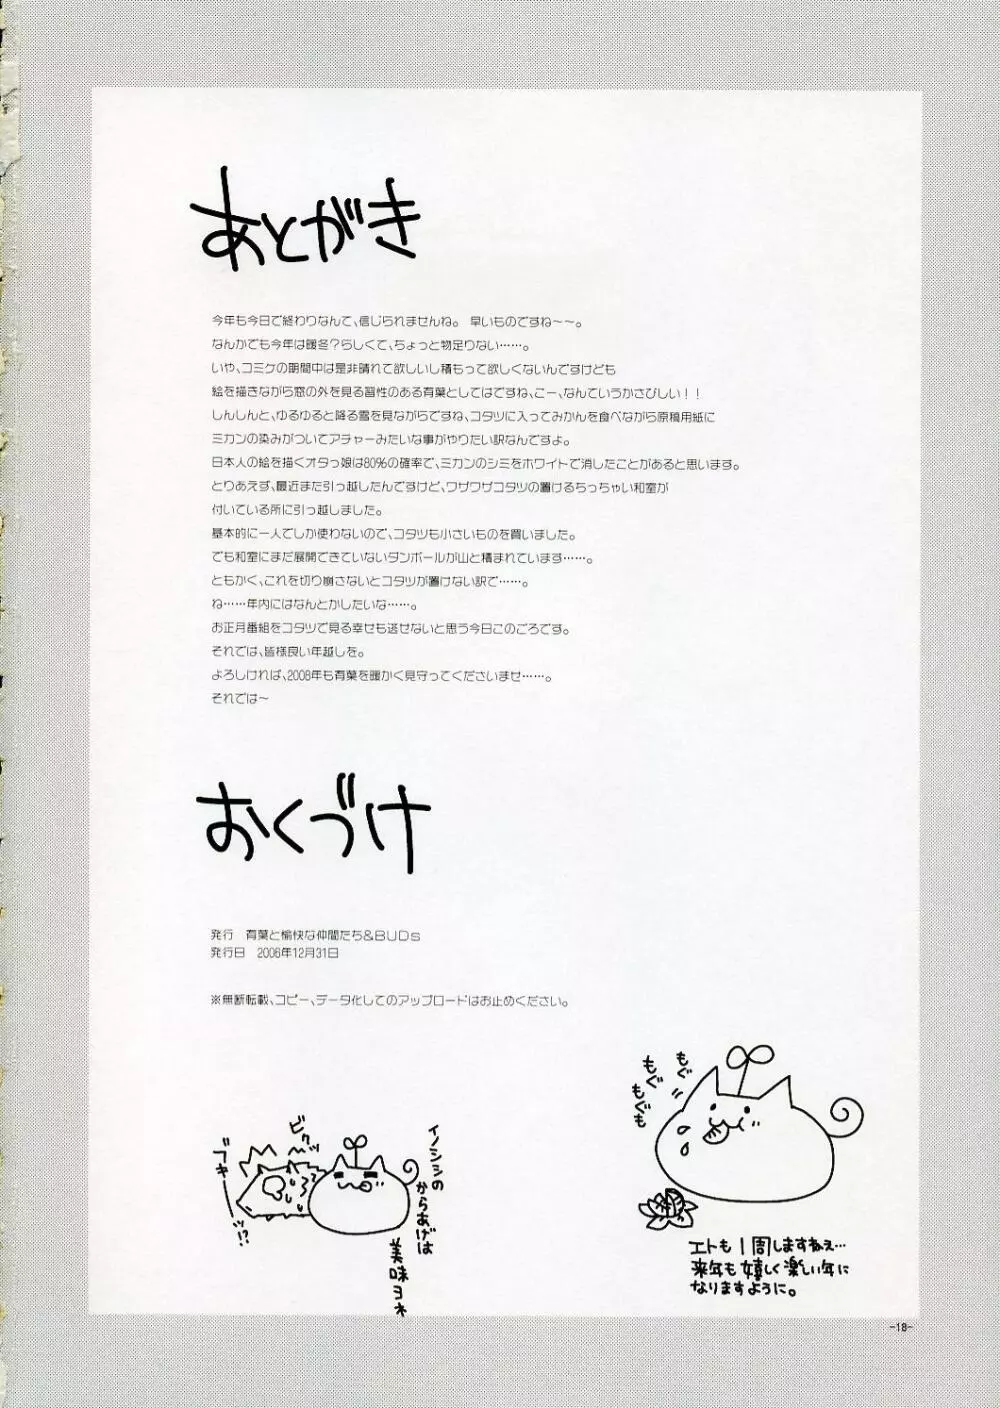 あとがき
今年も今日で終わりなんて、信じられませんね。 早いものですね～～。
なんかでも今年は暖冬？らしくて、ちょっと物足りない……。
いや、コミケの期間中は是非晴れて欲しいし積もって欲しくないんですけども
絵を描きながら窓の外を見る習性のある有葉としてはですね、こー、なんていうかさびしい！！
しんしんと、ゆるゆると降る雪を見ながらですね、コタツに入ってみかんを食べながら原稿用紙に
ミカンの染みがついてアチャーみたいな事がやりたい訳なんですよ。
日本人の絵を描くオタっ娘は80%の確率で、ミカンのシミをホワイトで消したことがあると思います。
とりあえず、最近また引っ越したんですけど、ワザワザコタツの置けるちっちゃい和室が
付いている所に引っ越しました。
基本的に一人でしか使わないので、コタツも小さいものを買いました。
でも和室にまだ展開できていないダンボールが山と積まれています……。
ともかく、これを切り崩さないとコタツが置けない訳で……。
ね……年内にはなんとかしたいな……。
お正月番組をコタツで見る幸せも逃せないと思う今日このごろです。
それでは、皆様良い年越しを。
よろしければ、2008年も有葉を暖かく見守ってくださいませ……。
それでは～
おくづけ
発行 有葉と愉快な仲間たち＆BUDs
発行日 2006年12月31日
※無断転載、コピー、データ化してのアップロードはお止めください。
もぐ
もぐ
もぐも
ビクッ
ブキーーッ!?
イノシシの
からあげは
美味ヨネ
エトも1周しますねぇ…
来年も嬉しく楽しい年に
なりますように。
-18-